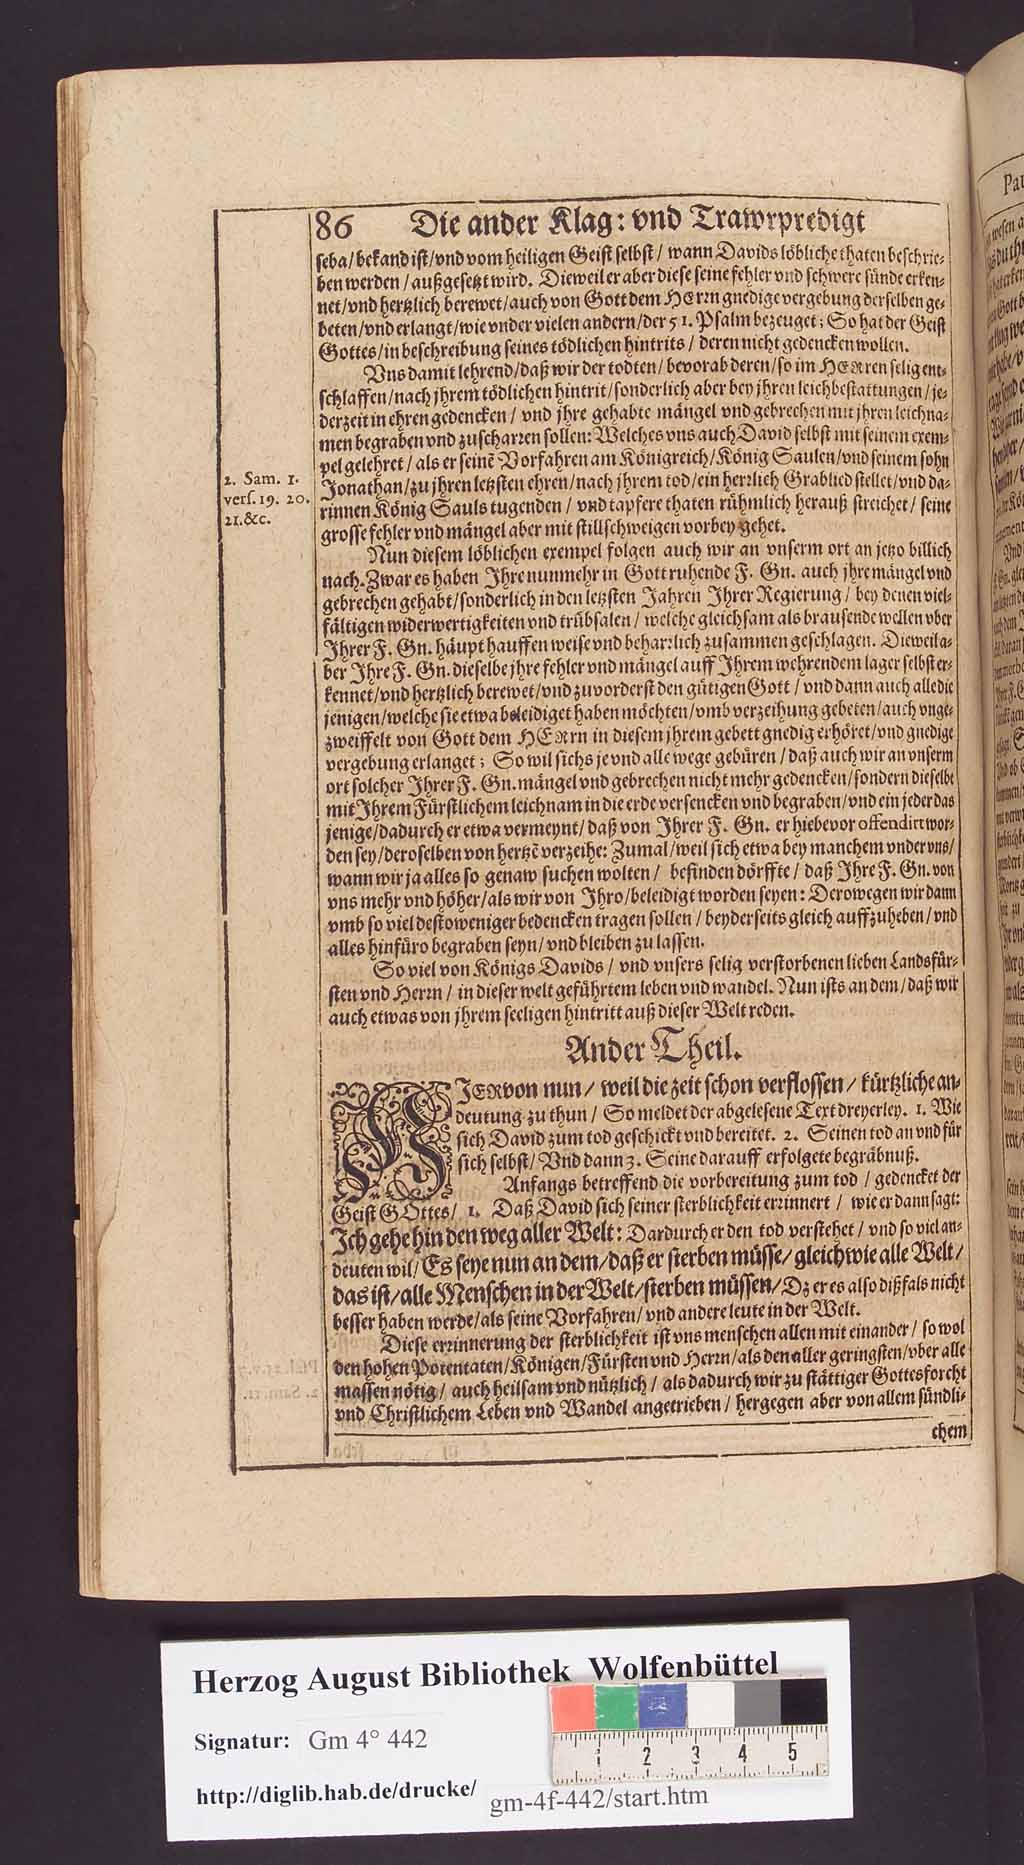 86 Die ander Klag: vnd Trawrpredigt
seba/ bekand ist/ vnd vom heiligen Geist selbst/ wann Davids löbliche thaten beschrie-
ben werden/ außgesetzt wird. Dieweil er aber diese seine fehler vnd schwere sünde erken-
net/ vnd hertzlich berewet/ auch von Gott dem HErrn gnedige vergebung derselben ge-
beten/ vnd erlangt/ wie vnder vielen andern/ der 51. Psalm bezeuget; So hat der Geist
Gottes/ in beschreibung seines tödlichen hintrits/ deren nicht gedencken wollen.
Vns damit lehrend/ daß wir der todten/ bevorab deren/ so im HERren selig ent-
schlaffen/ nach jhrem tödlichen hintrit/ sonderlich aber bey jhren leichbestattungen/ je-
derzeit in ehren gedencken/ vnd jhre gehabte mängel vnd gebrechen mit jhren leichna-
men begraben vnd zuscharren sollen: Welches vns auch David selbst mit seinem exem-
pel gelehret/ als er seinẽ Vorfahren am Königreich/ König Saulen/ vnd seinem sohn
2. Sam. 1.
vers. 19. 20.
21. &c.
Jonathan/ zu jhren letzsten ehren/ nach jhrem tod/ ein herrlich Grablied stellet/ vnd da-
rinnen König Sauls tugenden/ vnd tapfere thaten rühmlich herauß streichet/ seine
grosse fehler vnd mängel aber mit stillschweigen vorbey gehet.
Nun diesem löblichen exempel folgen auch wir an vnserm ort an jetzo billich
nach. Zwar es haben Ihre nunmehr in Gott ruhende F. Gn. auch jhre mängel vnd
gebrechen gehabt/ sonderlich in den letzsten Jahren Ihrer Regierung/ bey denen viel-
fältigen widerwertigkeiten vnd trübsalen/ welche gleichsam als brausende wellen vber
Ihrer F. Gn. häupt hauffen weise vnd beharrlich zusammen geschlagen. Dieweil a-
ber Ihre F. Gn. dieselbe jhre fehler vnd mängel auff Ihrem wehrendem lager selbst er-
kennet/ vnd hertzlich berewet/ vnd zuvorderst den gütigen Gott/ vnd dann auch alle die
jenigen/ welche sie etwa beleidiget haben möchten/ vmb verzeihung gebeten/ auch vnge-
zweiffelt von Gott dem HErrn in diesem jhrem gebett gnedig erhöret/ vnd gnedige
vergebung erlanget; So wil sichs je vnd alle wege gebüren/ daß auch wir an vnserm
ort solcher Ihrer F. Gn. mängel vnd gebrechen nicht mehr gedencken/ sondern dieselbe
mit Ihrem Fürstlichem leichnam in die erde versencken vnd begraben/ vnd ein jeder das
jenige/ dadurch er etwa vermeynt/ daß von Ihrer F. Gn. er hiebevor offendirt wor-
den sey/ deroselben von hertzẽ verzeihe: Zumal/ weil sich etwa bey manchem vnder vns/
wann wir ja alles so genaw suchen wolten/ befinden dörffte/ daß Ihre F. Gn. von
vns mehr vnd höher/ als wir von Ihro/ beleidigt worden seyen: Derowegen wir dann
vmb so viel destoweniger bedencken tragen sollen/ beyderseits gleich auffzuheben/ vnd
alles hinfüro begraben seyn/ vnd bleiben zu lassen.
So viel von Königs Davids/ vnd vnsers selig verstorbenen lieben Landsfür-
sten vnd Herrn/ in dieser welt geführtem leben vnd wandel. Nun ists an dem/ daß wir
auch etwas von jhrem seeligen hintritt auß dieser Welt reden.
Ander Theil.
HIERvon nun/ weil die zeit schon verflossen/ kürtzliche an-
deutung zu thun/ So meldet der abgelesene Text dreyerley. 1. Wie
sich David zum tod geschickt vnd bereitet. 2. Seinen tod an vnd für
sich selbst/ Vnd dann 3. Seine darauff erfolgete begräbnuß.
Anfangs betreffend die vorbereitung zum tod/ gedencket der
Geist GOttes/ 1. Daß David sich seiner sterblichkeit errinnert/ wie er dann sagt:
Ich gehe hin den weg aller Welt: Dardurch er den tod verstehet/ vnd so viel an-
deuten wil/ Es seye nun an dem/ daß er sterben müsse/ gleich wie alle Welt/
das ist/ alle Menschen in der Welt/ sterben müssen/ Dz er es also dißfals nicht
besser haben werde/ als seine Vorfahren/ vnd andere leute in der Welt.
Diese errinnerung der sterblichkeit ist vns menschen allen mit einander/ so wol
den hohen Potentaten/ Königen/ Fürsten vnd Herrn/ als den aller geringsten/ vber alle
massen nötig/ auch heilsam vnd nützlich/ als dadurch wir zu stättiger Gottesforcht
vnd Christlichem Leben vnd Wandel angetrieben/ hergegen aber von allem sündli-
chem
Herzog August Bibliothek Wolfenbüttel
Signatur: Gm 4° 442
http://diglib.hab.de/drucke/ gm-4f-442/start.htm
1 2 3 4 5